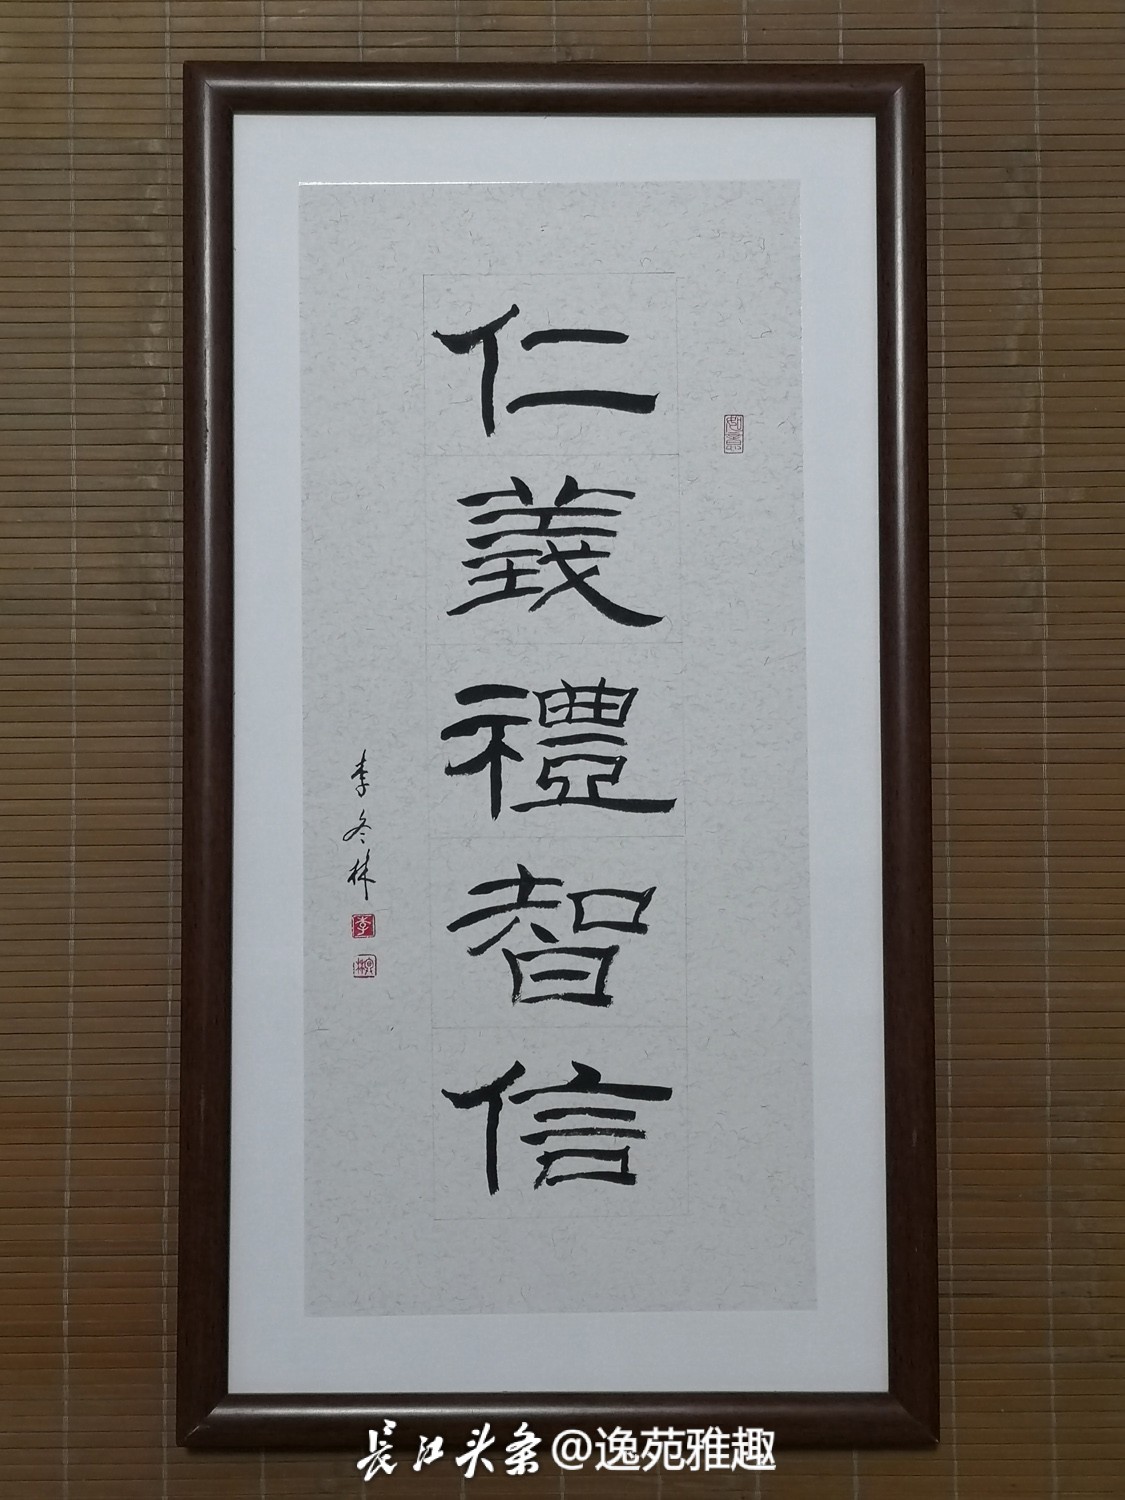 仁義禮智信
李冬林
李
長江头条@逸苑雅趣